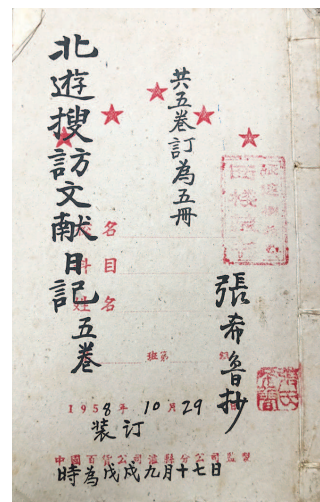 北遊搜訪文献日記五卷
共五卷訂為五冊
張希魯抄
名
科目
姓名
班第
1958年10月29日
装订
中國百貨公司滬縣分公司監製
時為戊戌九月十七日